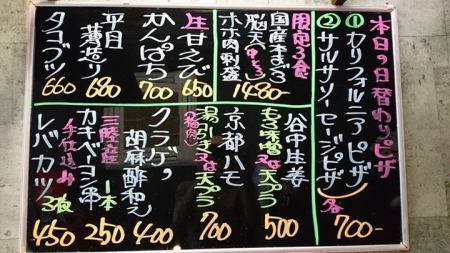 本日の日替わりピザ
①カリフォルニアピザ
②サルサソーセージピザ
各700-
限定3食
国産本まぐろ
脳天(中とろ)
ホホ肉刺盛
1480-
生甘えび
650
かんぱち
700
平目
薄造り
680
タコブツ
660
谷中生姜
もろ味噌又は天プラ
500
京都ハモ
湯引き又は天プラ
(梅肉)
700
クラゲの
胡麻酢和え
400
三陸産
カキベーコン串
1本
250
手仕込み
レバカツ
3枚
450